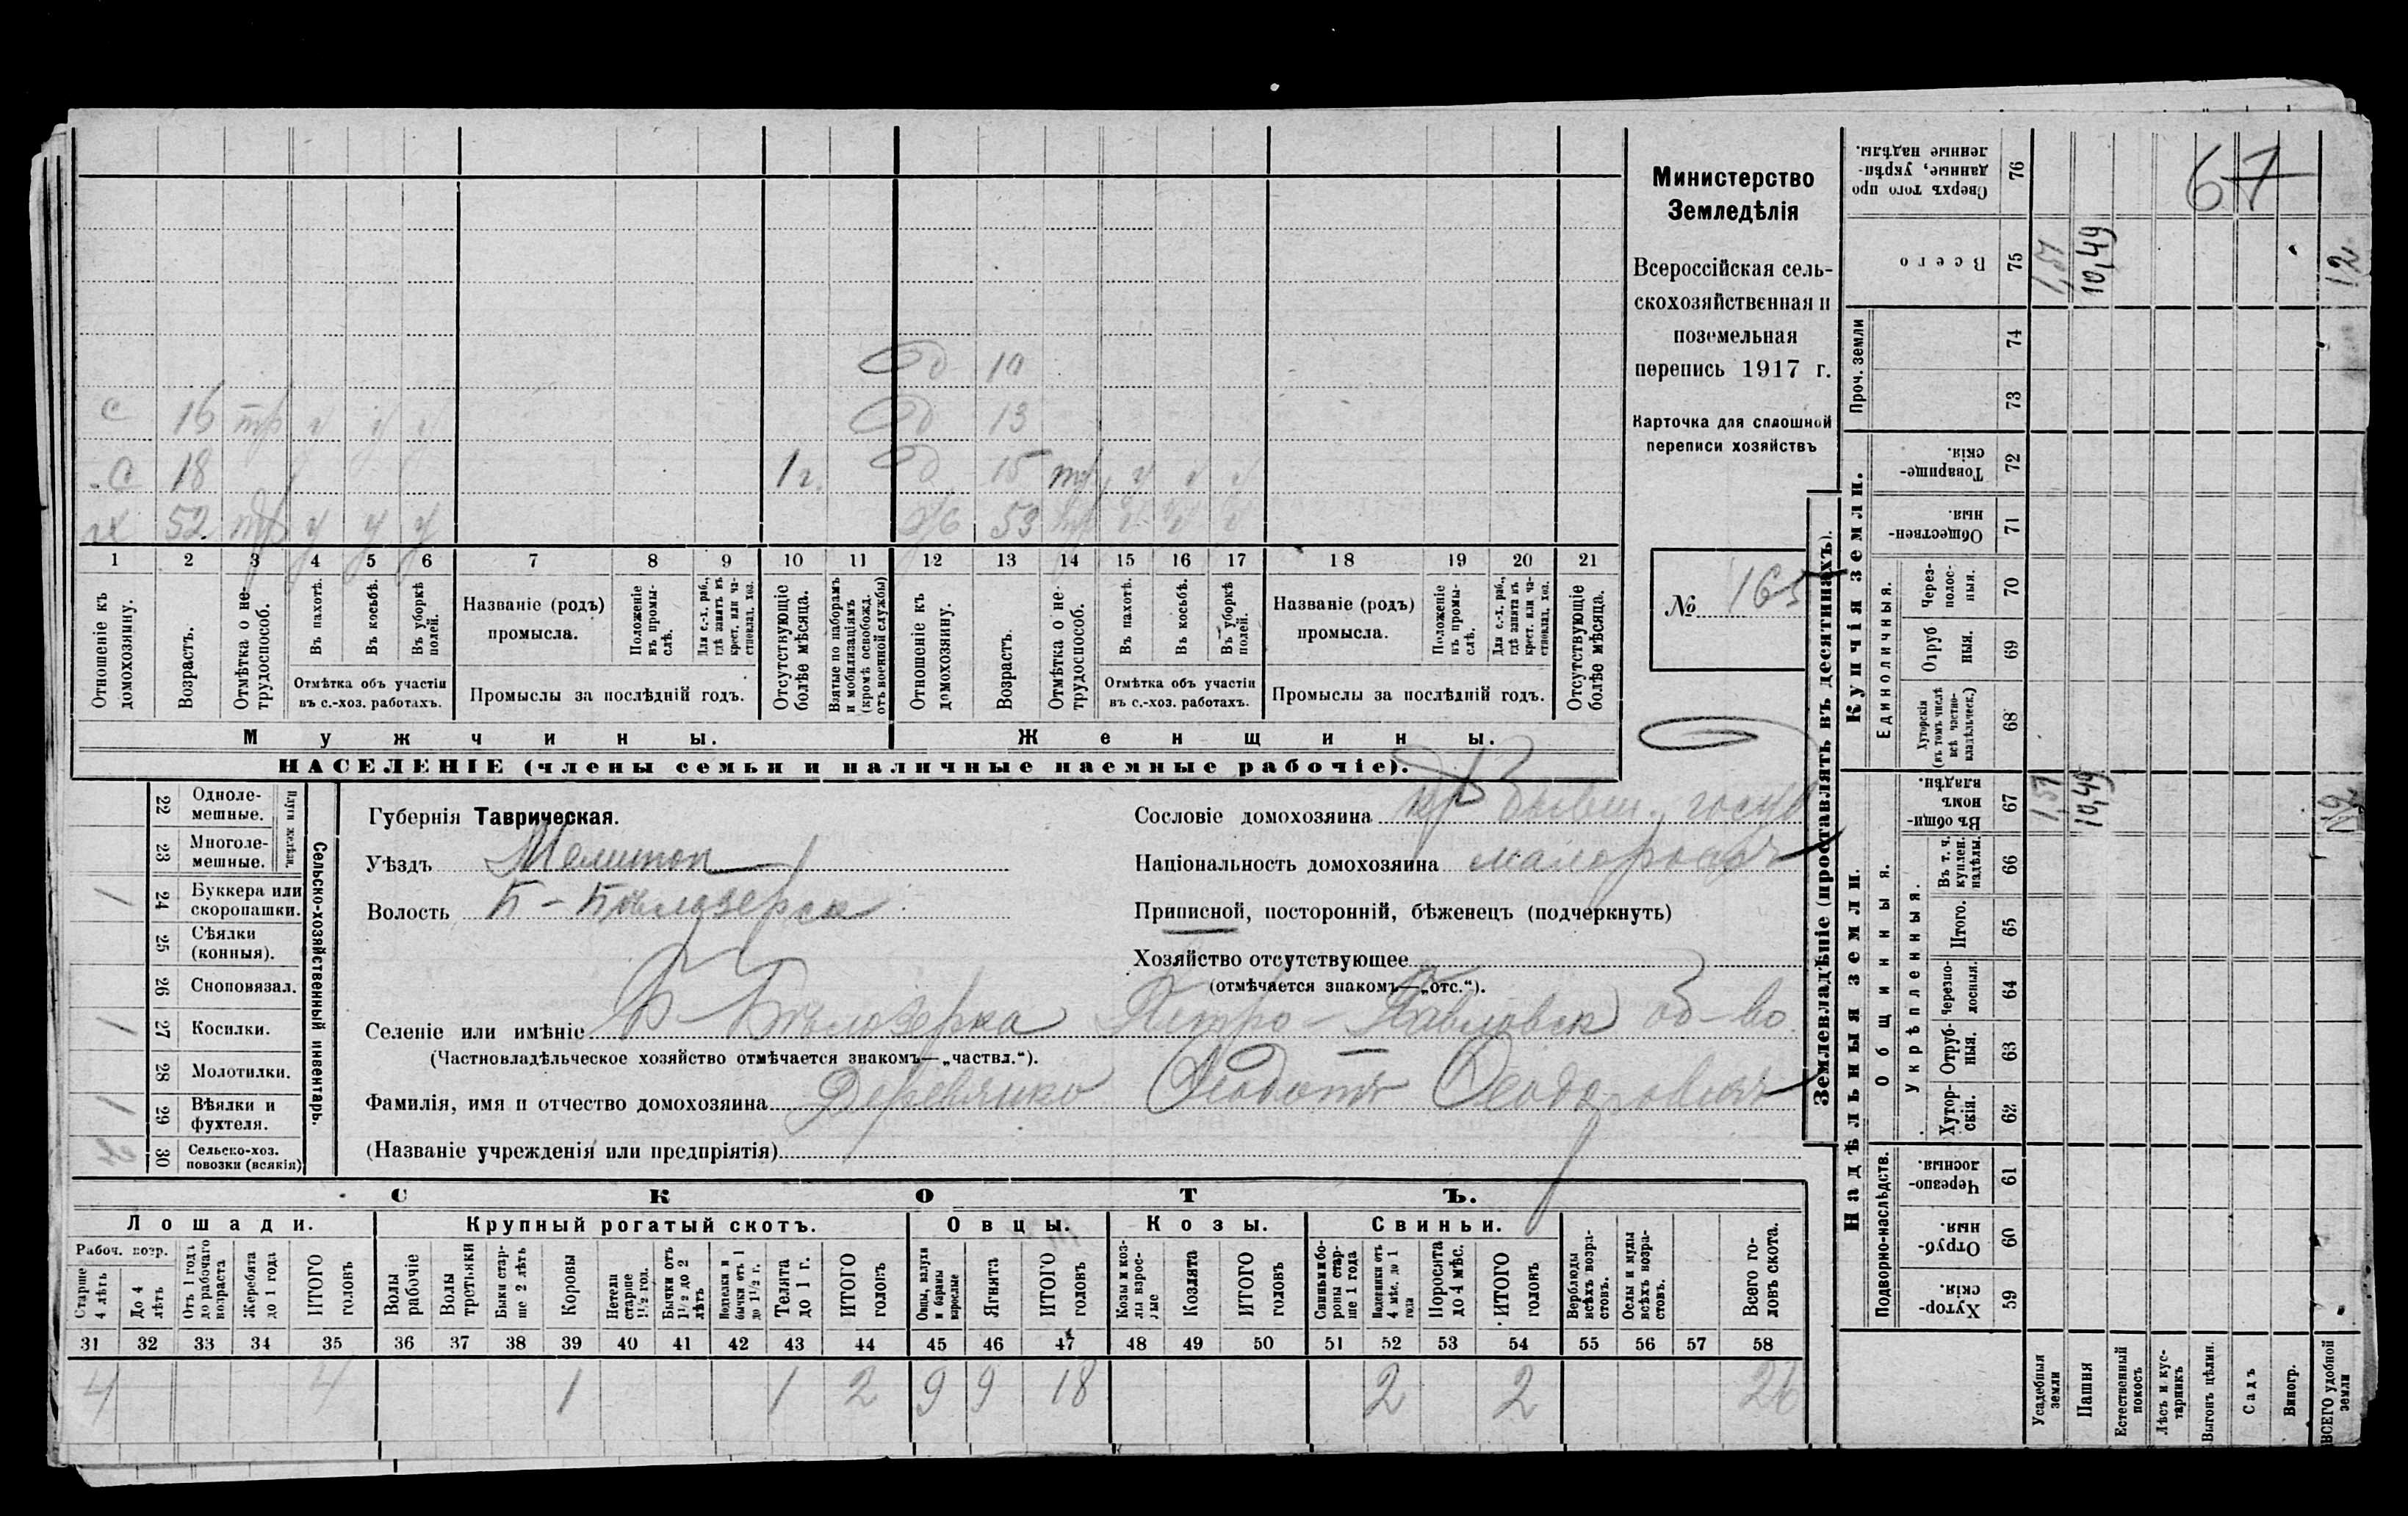 67
Министерство
Земледѣлія
Всероссійская сель-
скохозяйственная и
поземельная
перепись 1917 г.
Карточка для сплошной
переписи хозяйствъ
№ 165
д 10
с 16 тр у у у д 13
с 18 1 г. д 15 тр у у у
х 52 тр у у у 53 у у у
1 2 3 4 5 6 7 8 9 10 11 12 13 14 15 16 17 18 19 20 21
Отношеніе къ домохозяину.
Возрастъ.
Отмѣтка о не-трудоспособ.
Въ пахотѣ.
Въ косьбѣ.
Въ уборкѣ полей.
Отмѣтка объ участіи
въ с.-хоз. работахъ.
Названіе (родъ)
промысла.
Положеніе въ промы-слѣ.
Для с.-х. раб., гдѣ занятъ въ крест. или ча-стновлад. хоз.
Промыслы за послѣдній годъ.
Отсутствующіе болѣе мѣсяца.
Взятые по наборамъ и мобилизаціямъ (кромѣ освобожд. отъ военной службы)
Отношеніе къ домохозяину.
Возрастъ.
Отмѣтка о не-трудоспособ.
Въ пахотѣ.
Въ косьбѣ.
Въ уборкѣ полей.
Отмѣтка объ участіи
въ с.-хоз. работахъ.
Названіе (родъ)
промысла.
Положеніе въ промы-слѣ.
Для с.-х. раб., гдѣ занята въ крест. или ча-стновлад. хоз.
Промыслы за послѣдній годъ.
Отсутствующіе болѣе мѣсяца.
Мужчины. Женщины.
НАСЕЛЕНІЕ (члены семьи и наличные наемные рабочіе).
Сельско-хозяйственный инвентарь.
Плуги желѣзн.
22 Одноле-мешные.
23 Многоле-мешные.
1 24 Буккера или скоропашки.
25 Сѣялки (конныя).
26 Сноповязал.
1 27 Косилки.
28 Молотилки.
1 29 Вѣялки и фухтеля.
30 Сельско-хоз. повозки (всякія)
Губернія Таврическая.
Уѣздъ Мелитоп
Волость Б-Бѣлозерск
Сословіе домохозяина кр бывш. госуд
Національность домохозяина малороссъ
Приписной, посторонній, бѣженецъ (подчеркнуть)
Хозяйство отсутствующее
(отмѣчается знакомъ—„отс.“).
Селеніе или имѣніе Б-Бѣлозерка Петро-Павловск об-во.
(Частновладѣльческое хозяйство отмѣчается знакомъ—„частвл.“).
Фамилія, имя и отчество домохозяина Деревянко Феодотъ Феодоровичъ
(Названіе учрежденія или предпріятія)
СКОТЪ.
Лошади. Крупный рогатый скотъ. Овцы. Козы. Свиньи.
Рабоч. возр.
Старше 4 лѣтъ
До 4 лѣтъ
Отъ 1 года до рабочаго возраста
Жеребята до 1 года
ИТОГО головъ
Волы рабочіе
Волы третьяки
Быки стар-ше 2 лѣтъ
Коровы
Нетели старше 1½ год.
Бычки отъ 1½ до 2 лѣтъ
Подтелки и бычки отъ 1 до 1½ г.
Телята до 1 г.
ИТОГО головъ
Овцы, валухи и бараны взрослые
Ягнята
ИТОГО головъ
Козы и коз-лы взрос-лые
Козлята
ИТОГО головъ
Свиньи и бо-ровы стар-ше 1 года
Подсвинки отъ 4 мѣс. до 1 года
Поросята до 4 мѣс.
ИТОГО головъ
Верблюды всѣхъ возра-стовъ.
Ослы и мулы всѣхъ возра-стовъ.
Всего го-ловъ скота.
31 32 33 34 35 36 37 38 39 40 41 42 43 44 45 46 47 48 49 50 51 52 53 54 55 56 57 58
4 4 1 1 2 9 9 18 2 2 26
Землевладѣніе (проставлять въ десятинахъ).
Надѣльныя земли. Купчія земли.
Сверхъ того про данные, укрѣп-ленные надѣлы. 76
Всего 75 1,51 10,49 12
Проч. земли 74 73
Товарище-скія. 72
Обществен-ныя. 71
Единоличныя.
Через-полос-ныя. 70
Отруб ныя. 69
Хуторскія (въ томъ числѣ всѣ частно-владѣльческ.) 68
Общинныя.
Въ общи-номъ владѣн. 67 1,51 10,49 12
Укрѣпленныя.
Въ т. ч. куплен. надѣлы. 66
Итого. 65
Черезпо-лосныя. 64
Отруб-ныя. 63
Хутор-скія. 62
Подворно-наслѣдств.
Черезпо-лосныя. 61
Отруб-ныя. 60
Хутор-скія. 59
Усадебныя земли
Пашня
Естественный покосъ
Лѣсъ и кус-тарникъ
Выгонъ цѣлин.
Садъ
Виногр.
ВСЕГО удобной земли